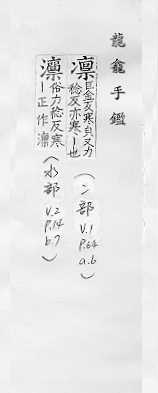 龍龕手鑑
凛巨金反寒皃又力
稔反亦寒丨也
(冫部 V.1 P.64 a.6)
澟俗力稔反寒
丨正作凛
(水部 V.2 P.14 b.7)